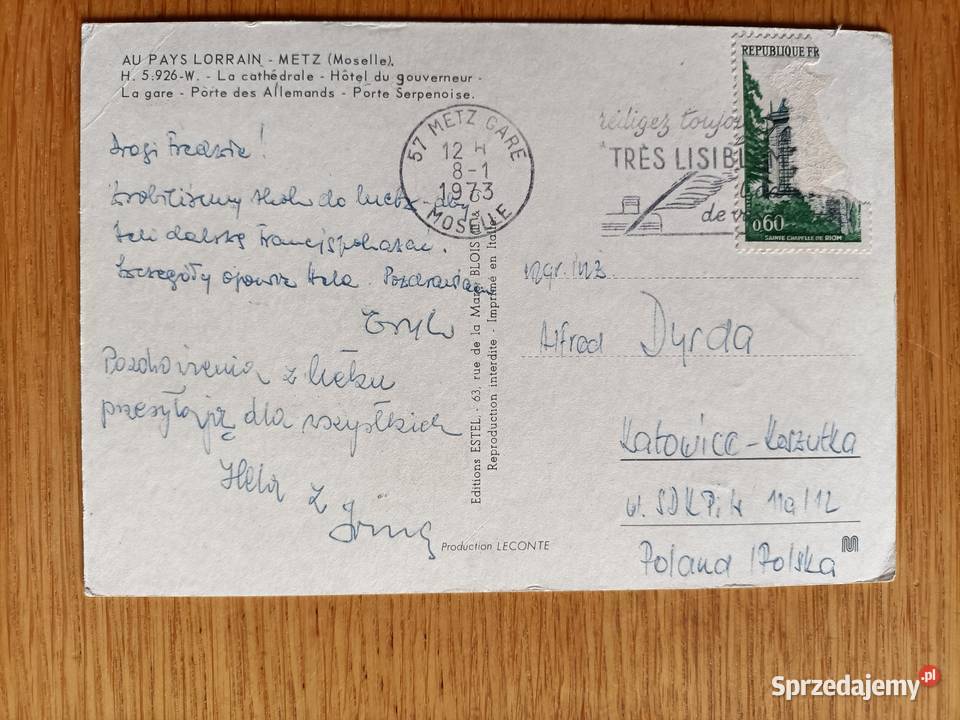 AU PAYS LORRAIN - METZ (Moselle).
H. 5.926-W. - La cathédrale - Hôtel du gouverneur -
La gare - Porte des Allemands - Porte Serpenoise.
Drogi Fredzie!
Zrobiliśmy skok do Metz - aby
Heli dalszą Francję pokazać.
Szczegóły opowie Hela. Pozdrawiam
Pozdrowienia z Metzu
przesyłają dla wszystkich
Hela z
Production LECONTE
Editions ESTEL - 63, rue de la Mare BLOIS
Reproduction interdite - Imprimé en Italie
57 METZ GARE
12 H
8-1
1973
MOSELLE
rédigez toujours
TRÈS LISIBLEM
de v
REPUBLIQUE FR
0,60
SAINTE CHAPELLE DE RIOM
mgr. inż.
Alfred Dyrda
Katowice-Koszutka
ul. SDKPiL 11a/12
Poland /Polska
M
Sprzedajemy.pl